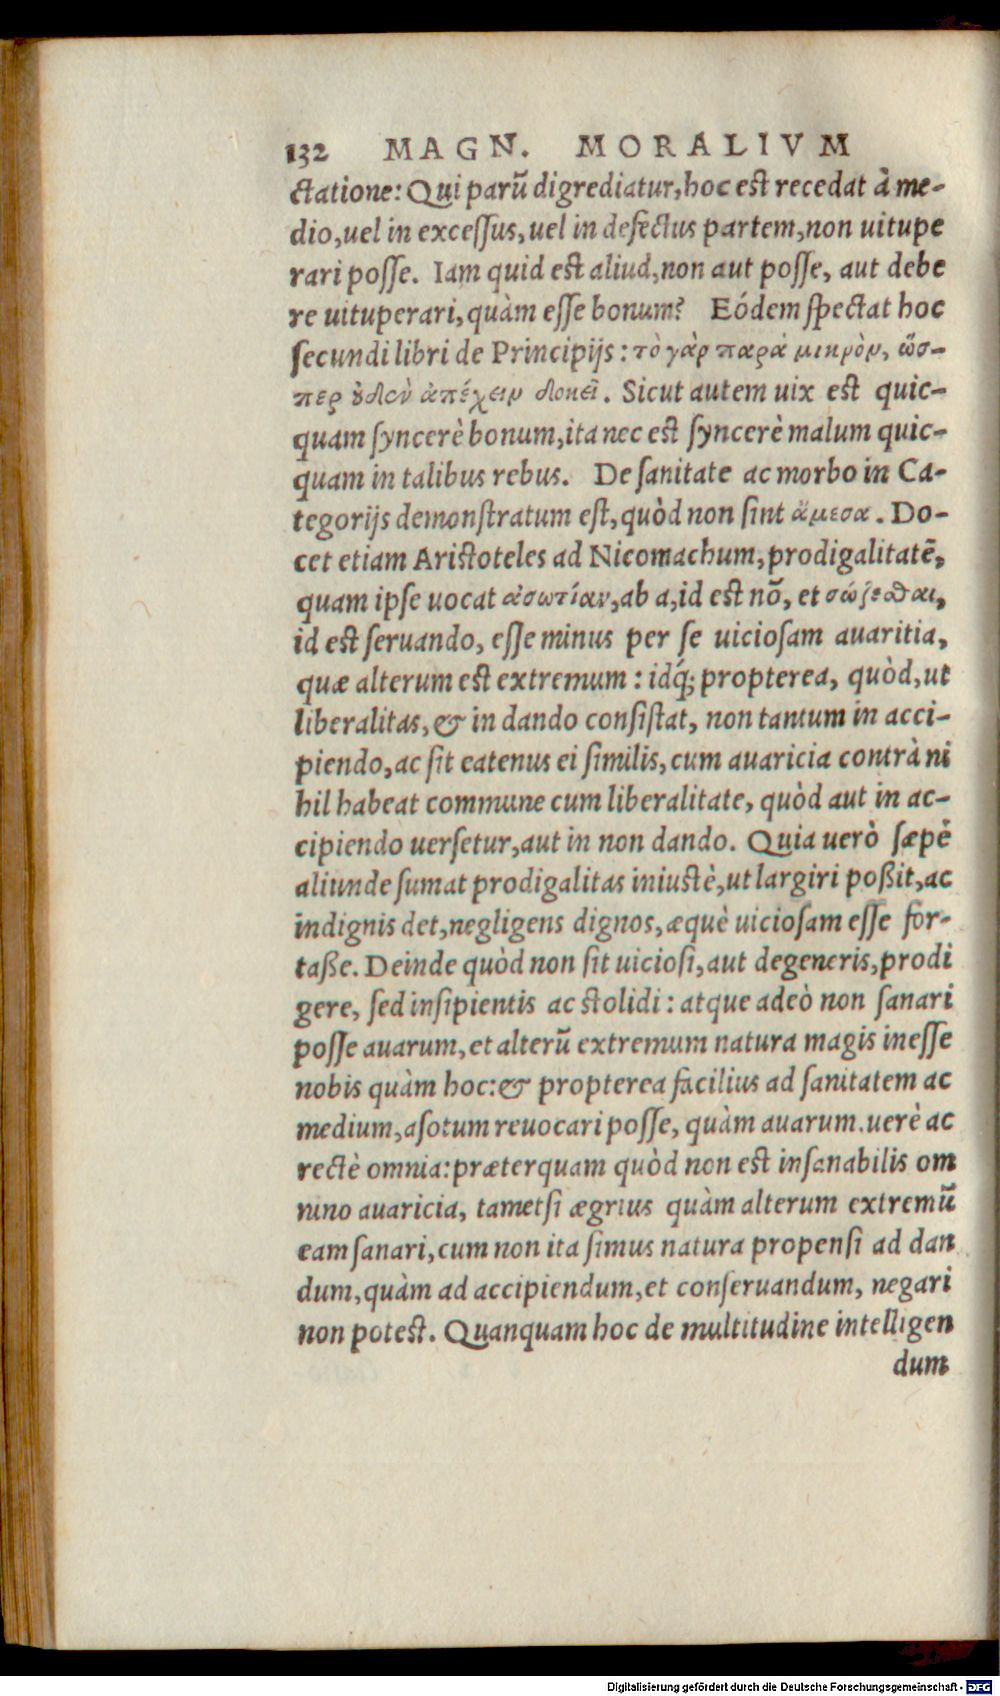 132 MAGN. MORALIVM
ctatione: Qui parū digrediatur, hoc est recedat à me-
dio, uel in excessus, uel in defectus partem, non uitupe
rari posse. Iam quid est aliud, non aut posse, aut debe
re uituperari, quàm esse bonum? Eódem spectat hoc
secundi libri de Principijs: τὸ γὰρ παρὰ μικρὸν, ὥσ-
περ ȣ̓δὲν ἀπέχειν δοκεῖ. Sicut autem uix est quic-
quam syncerè bonum, ita nec est syncerè malum quic-
quam in talibus rebus. De sanitate ac morbo in Ca-
tegorijs demonstratum est, quòd non sint ἄμεσα. Do-
cet etiam Aristoteles ad Nicomachum, prodigalitatē,
quam ipse uocat ἀσωτίαν, ab a, id est nō, et σώζεσθαι,
id est seruando, esse minus per se uiciosam auaritia,
quæ alterum est extremum: idq́; propterea, quòd, ut
liberalitas, & in dando consistat, non tantum in acci-
piendo, ac sit eatenus ei similis, cum auaricia contrà ni
hil habeat commune cum liberalitate, quòd aut in ac-
cipiendo uersetur, aut in non dando. Quia uerò sæpè
aliunde sumat prodigalitas iniustè, ut largiri poßit, ac
indignis det, negligens dignos, æquè uiciosam esse for-
taße. Deinde quòd non sit uiciosi, aut degeneris, prodi
gere, sed insipientis ac stolidi: atque adeò non sanari
posse auarum, et alterū extremum natura magis inesse
nobis quàm hoc: & propterea facilius ad sanitatem ac
medium, asotum reuocari posse, quàm auarum. uerè ac
rectè omnia: præterquam quòd non est insanabilis om
nino auaricia, tametsi ægrius quàm alterum extremū
eam sanari, cum non ita simus natura propensi ad dan
dum, quàm ad accipiendum, et conseruandum, negari
non potest. Quanquam hoc de multitudine intelligen
dum
Digitalisierung gefördert durch die Deutsche Forschungsgemeinschaft - DFG